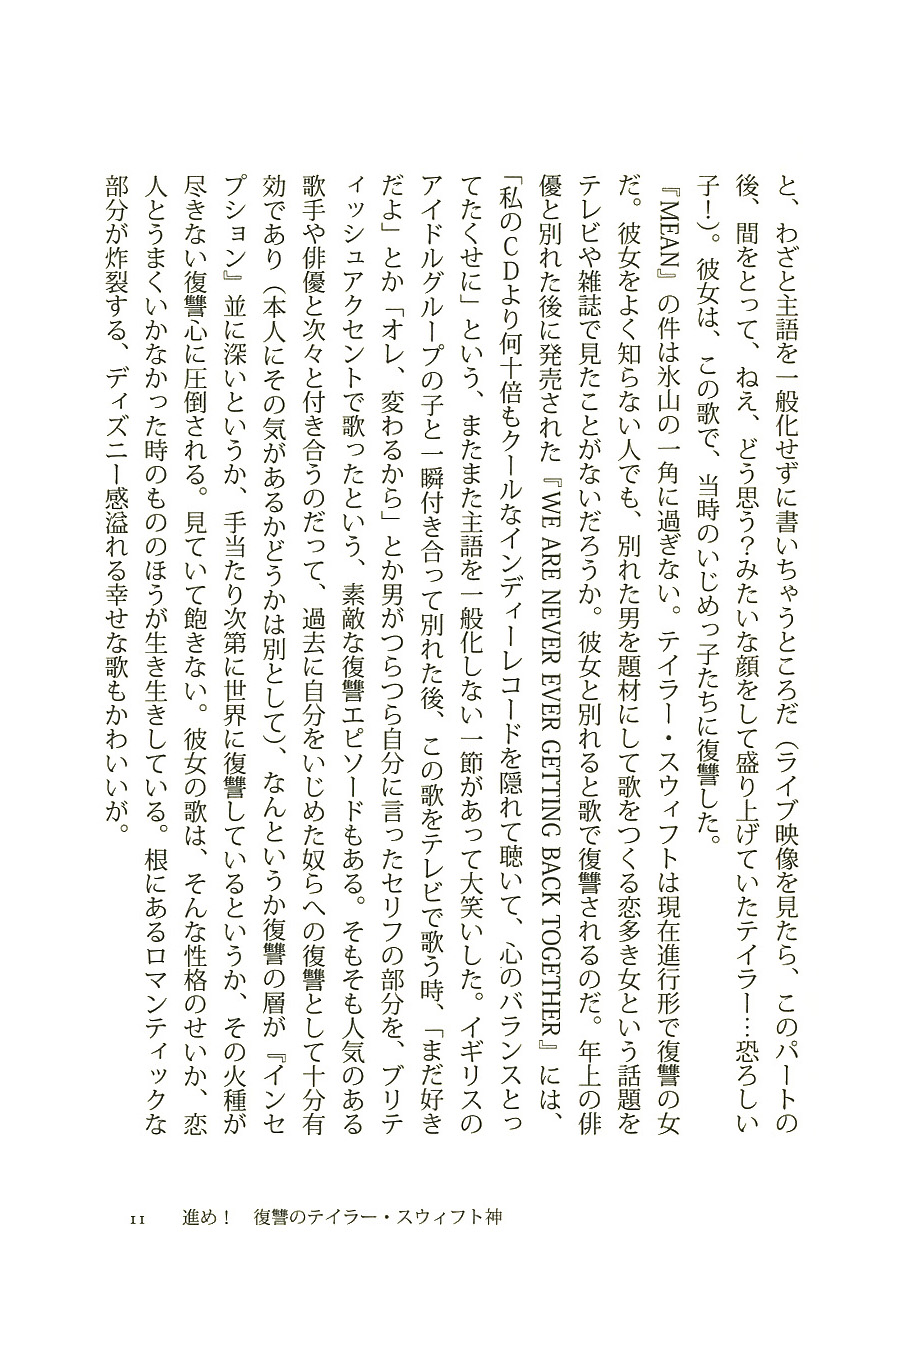 と、わざと主語を一般化せずに書いちゃうところだ（ライブ映像を見たら、このパートの
後、間をとって、ねえ、どう思う？みたいな顔をして盛り上げていたテイラー…恐ろしい
子！）。彼女は、この歌で、当時のいじめっ子たちに復讐した。
『MEAN』の件は氷山の一角に過ぎない。テイラー・スウィフトは現在進行形で復讐の女
だ。彼女をよく知らない人でも、別れた男を題材にして歌をつくる恋多き女という話題を
テレビや雑誌で見たことがないだろうか。彼女と別れると歌で復讐されるのだ。年上の俳
優と別れた後に発売された『WE ARE NEVER EVER GETTING BACK TOGETHER』には、
「私のCDより何十倍もクールなインディーレコードを隠れて聴いて、心のバランスとっ
てたくせに」という、またまた主語を一般化しない一節があって大笑いした。イギリスの
アイドルグループの子と一瞬付き合って別れた後、この歌をテレビで歌う時、「まだ好き
だよ」とか「オレ、変わるから」とか男がつらつら自分に言ったセリフの部分を、ブリテ
ィッシュアクセントで歌ったという、素敵な復讐エピソードもある。そもそも人気のある
歌手や俳優と次々と付き合うのだって、過去に自分をいじめた奴らへの復讐として十分有
効であり（本人にその気があるかどうかは別として）、なんというか復讐の層が『インセ
プション』並に深いというか、手当たり次第に世界に復讐しているというか、その火種が
尽きない復讐心に圧倒される。見ていて飽きない。彼女の歌は、そんな性格のせいか、恋
人とうまくいかなかった時のもののほうが生き生きしている。根にあるロマンティックな
部分が炸裂する、ディズニー感溢れる幸せな歌もかわいいが。
11　進め！　復讐のテイラー・スウィフト神